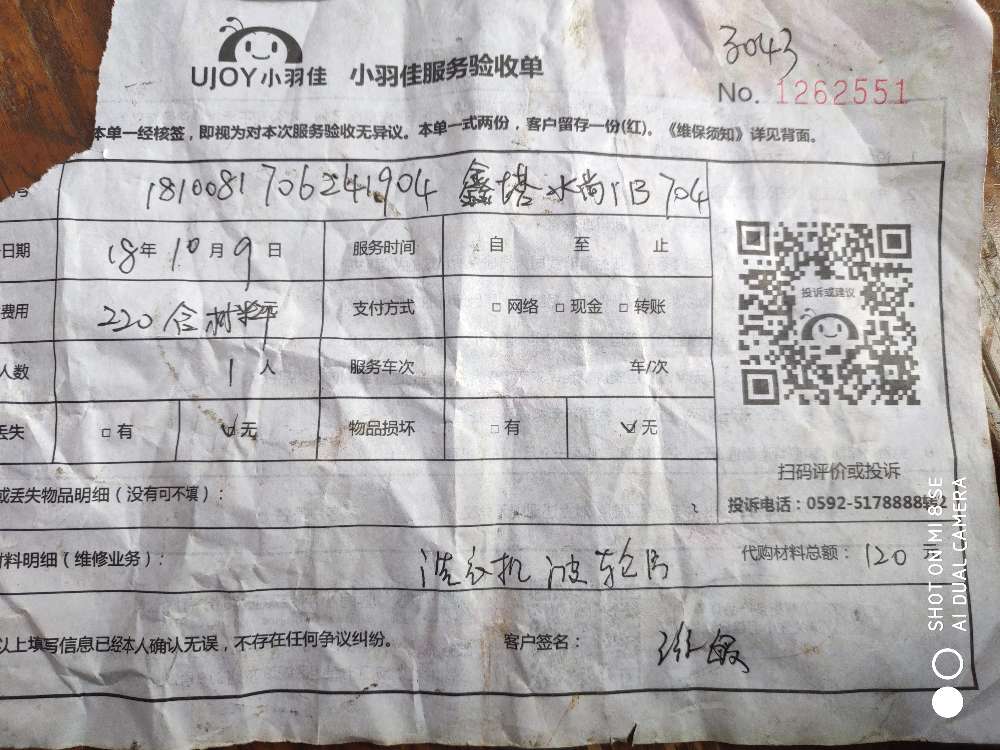 3043
UJOY小羽佳 小羽佳服务验收单
No. 1262551
本单一经核签，即视为对本次服务验收无异议。本单一式两份，客户留存一份(红)。《维保须知》详见背面。
号 181008170624190​4 鑫塔水尚1B 704
日期 18年10月9日 服务时间 自 至 止
费用 220含材料 支付方式 □网络 □现金 □转账
人数 1人 服务车次 车/次
丢失 □有 ☑无 物品损坏 □有 ☑无
投诉或建议
扫码评价或投诉
投诉电话：0592-5178888
或丢失物品明细（没有可不填）：
材料明细（维修业务）： 洗衣机波轮
代购材料总额： 120 元
以上填写信息已经本人确认无误，不存在任何争议纠纷。 客户签名：
SHOT ON MI 8 SE
AI DUAL CAMERA